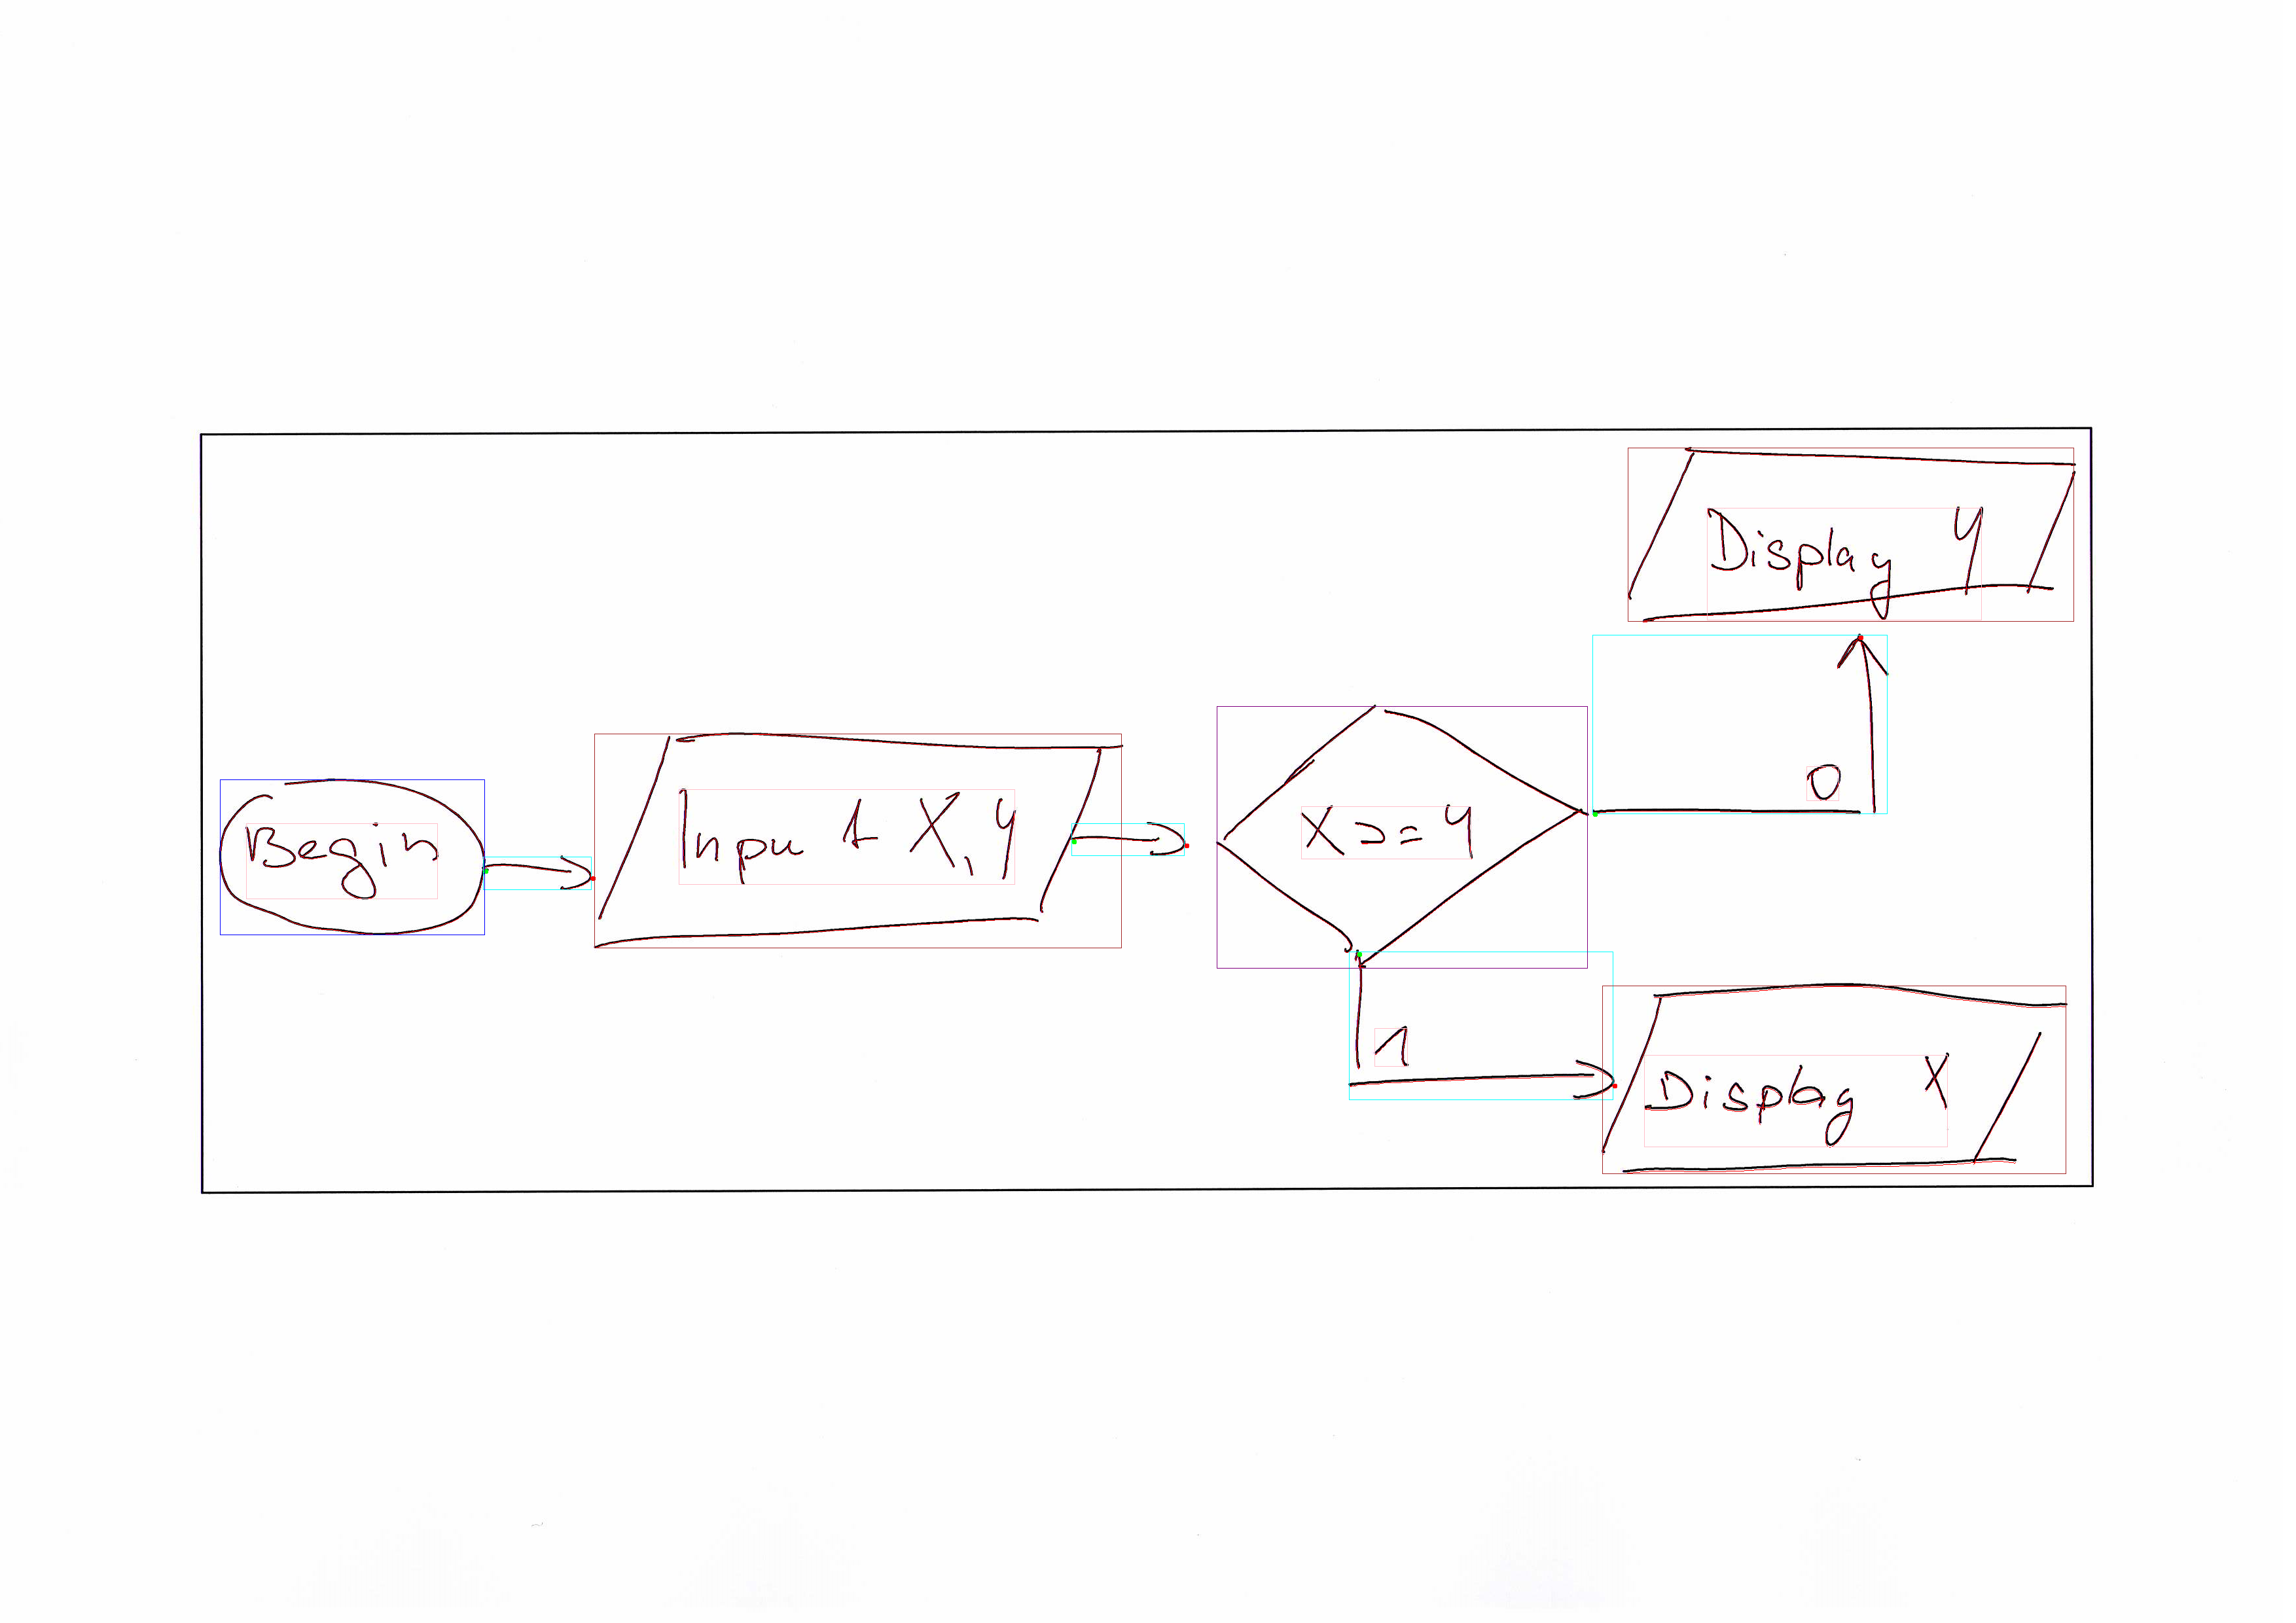 Begin
Input X, Y
X >= Y
0
Display Y
1
Display X